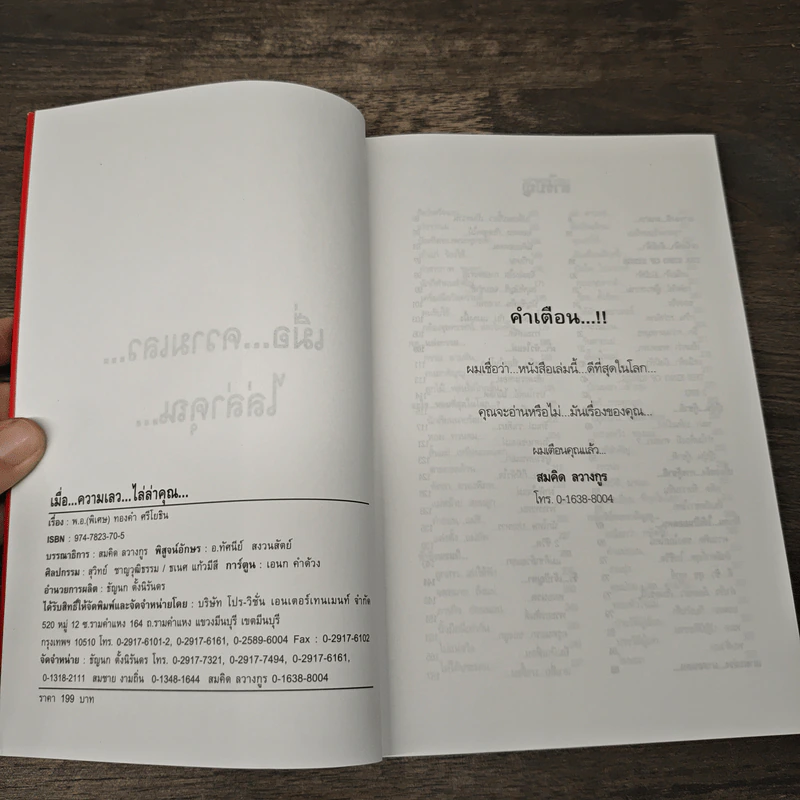 เมื่อ...ความเลว...ไล่ล่าคุณ...
เรื่อง : พ.อ.(พิเศษ) ทองคำ ศรีโยธิน
ISBN : 974-7823-70-5
บรรณาธิการ : สมคิด ลวางกูร พิสูจน์อักษร : อ.ทัศนีย์ สงวนสัตย์
ศิลปกรรม : สุวิทย์ ชาญวุฒิธรรม / ธเนศ แก้วมีสี การ์ตูน : เอนก คำด้วง
อำนวยการผลิต : ธัญนก ตั้งนิรันดร
ได้รับสิทธิ์ให้จัดพิมพ์และจัดจำหน่ายโดย : บริษัท โปร-วิชั่น เอนเตอร์เทนเมนท์ จำกัด
520 หมู่ 12 ซ.รามคำแหง 164 ถ.รามคำแหง แขวงมีนบุรี เขตมีนบุรี
กรุงเทพฯ 10510 โทร. 0-2917-6101-2, 0-2917-6161, 0-2589-6004 Fax : 0-2917-6102
จัดจำหน่าย : ธัญนก ตั้งนิรันดร โทร. 0-2917-7321, 0-2917-7494, 0-2917-6161,
0-1318-2111 สมชาย งามยิ่น 0-1348-1644 สมคิด ลวางกูร 0-1638-8004
ราคา 199 บาท
คำเตือน...!!
ผมเชื่อว่า...หนังสือเล่มนี้...ดีที่สุดในโลก...
คุณจะอ่านหรือไม่...มันเรื่องของคุณ...
ผมเตือนคุณแล้ว...
สมคิด ลวางกูร
โทร. 0-1638-8004